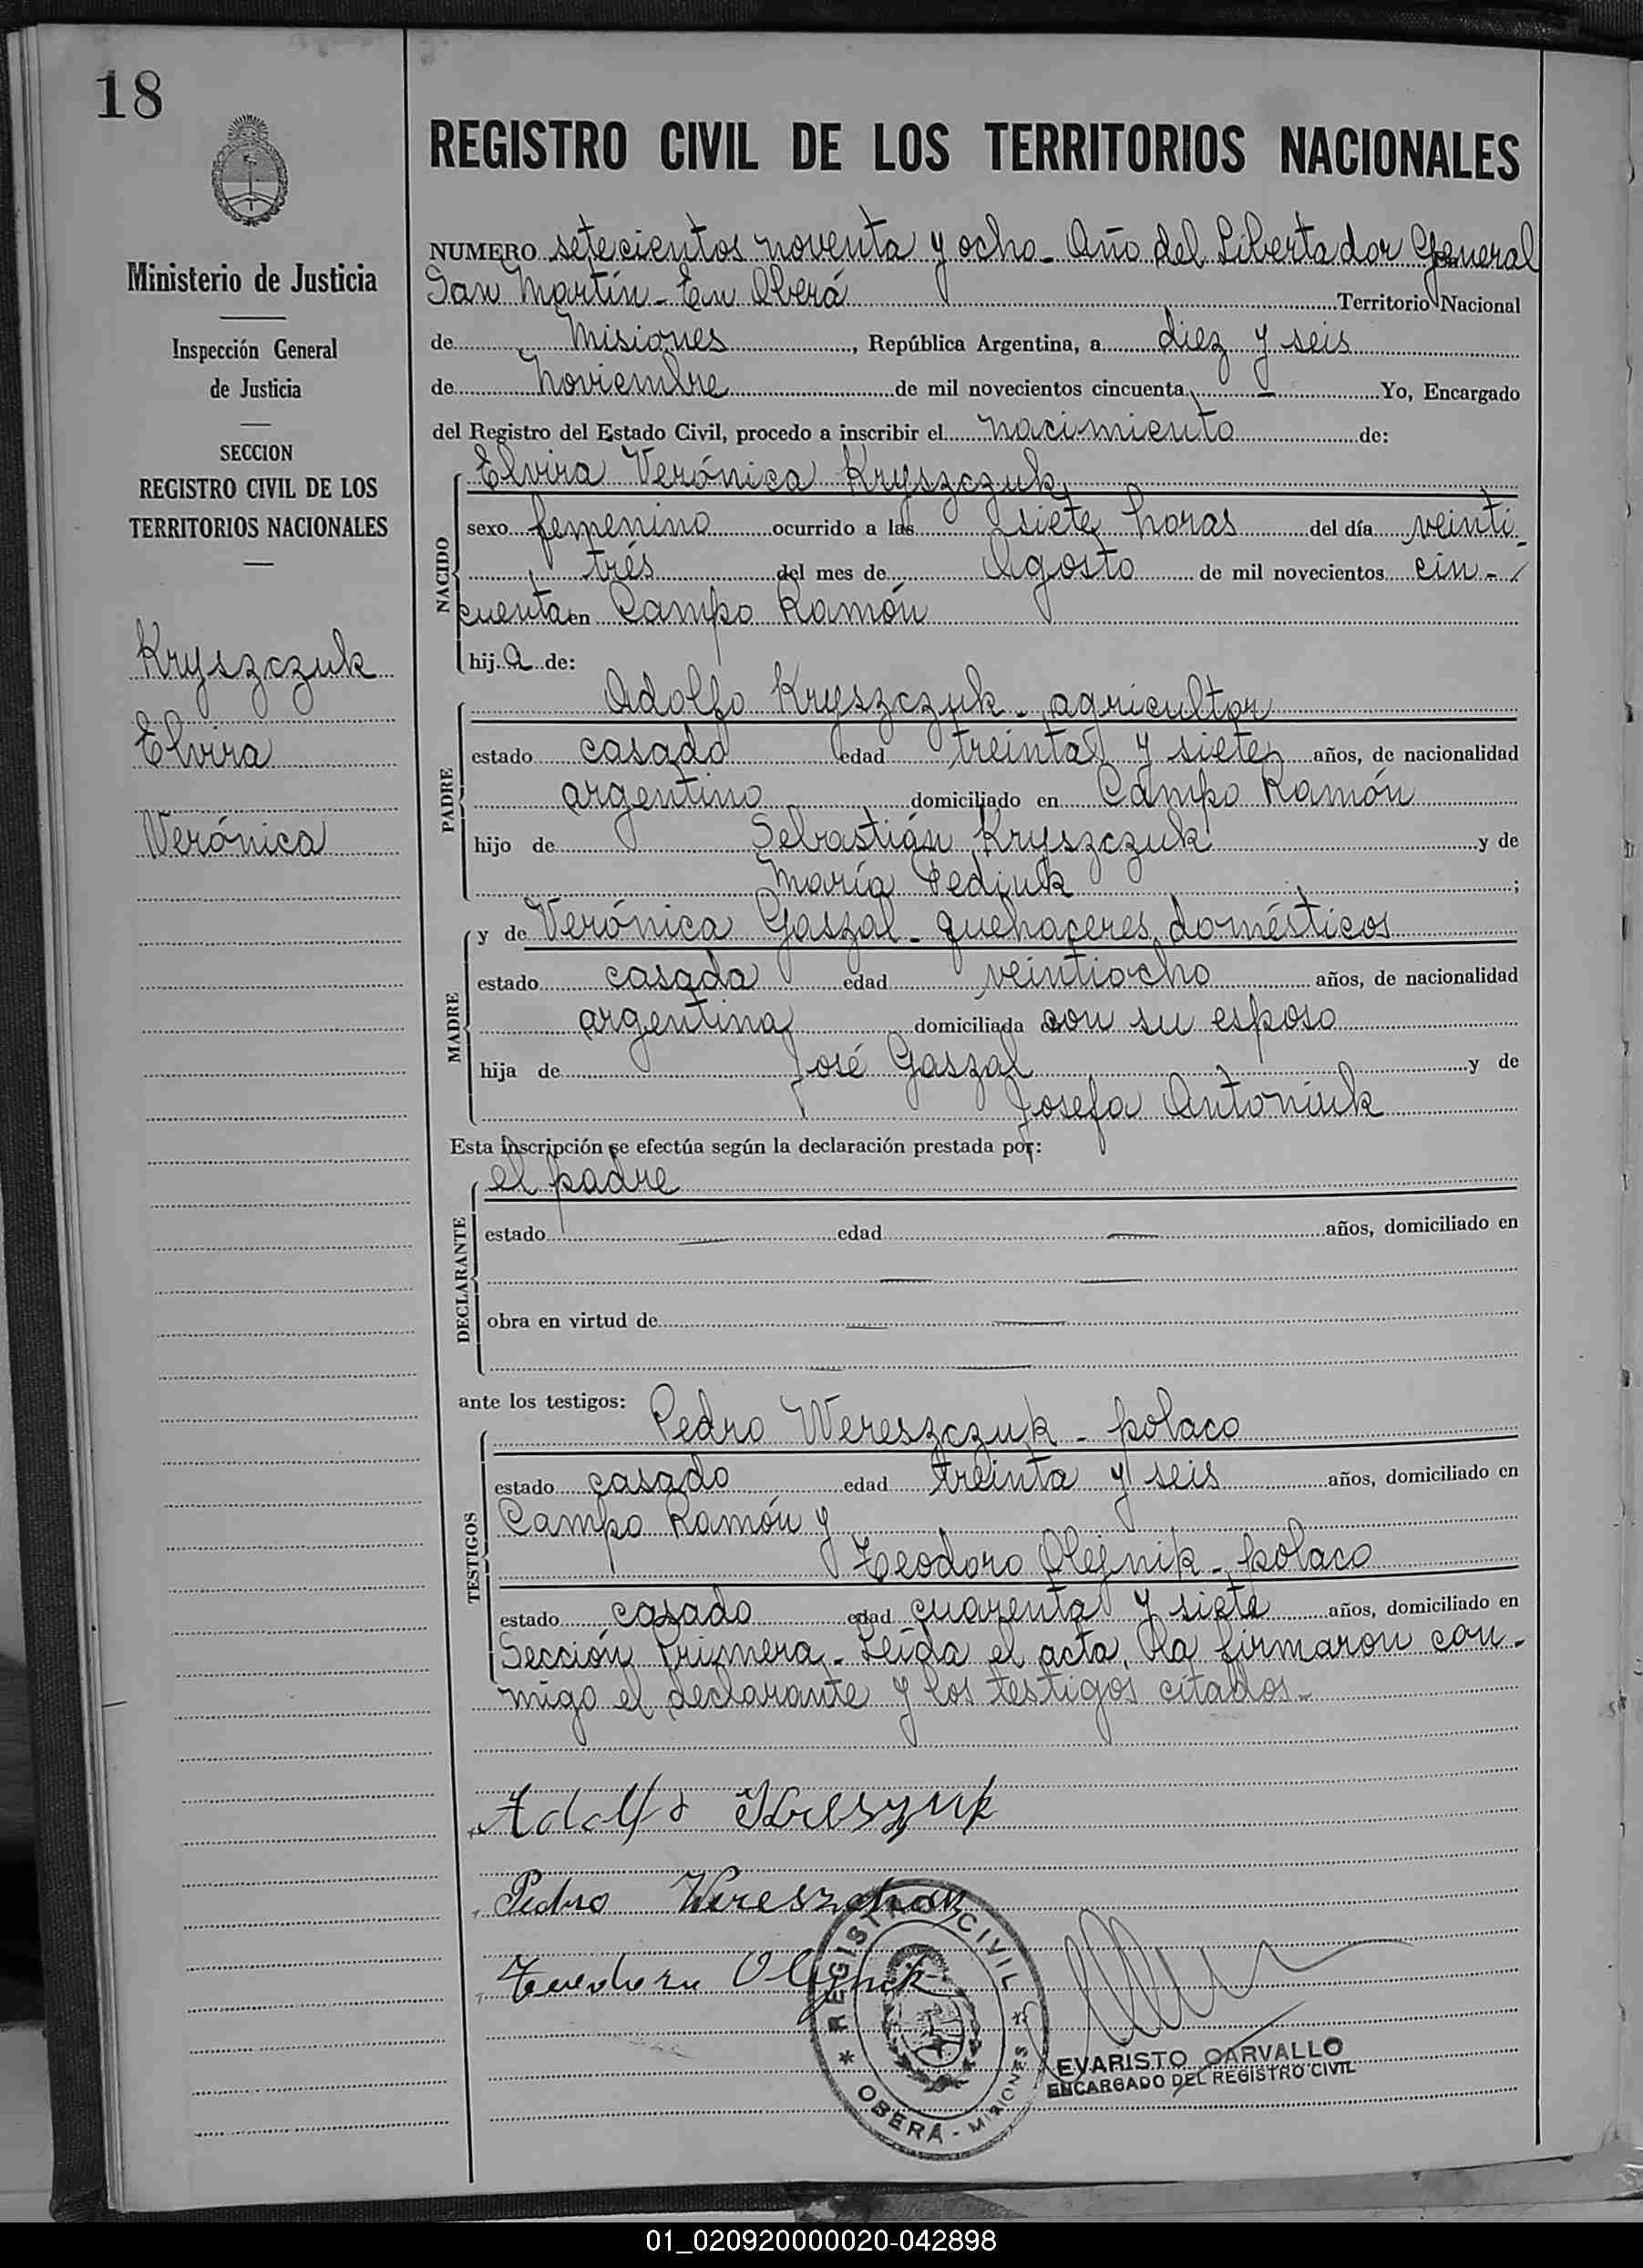 18
REGISTRO CIVIL DE LOS TERRITORIOS NACIONALES
Ministerio de Justicia
Inspección General
de Justicia
SECCION
REGISTRO CIVIL DE LOS
TERRITORIOS NACIONALES
Kryszczuk
Elvira
Verónica
NUMERO setecientos noventa y ocho - Año del Libertador General
San Martín - En Oberá Territorio Nacional
de Misiones, República Argentina, a diez y seis
de Noviembre de mil novecientos cincuenta - Yo, Encargado
del Registro del Estado Civil, procedo a inscribir el nacimiento de:
NACIDO
Elvira Verónica Kryszczuk
sexo femenino ocurrido a las siete horas del día veinti-
trés del mes de Agosto de mil novecientos cin-
cuenta en Campo Ramón
hij a de:
PADRE
Adolfo Kryszczuk - agricultor
estado casado edad treinta y siete años, de nacionalidad
argentino domiciliado en Campo Ramón
hijo de Sebastián Kryszczuk y de
María Fediuk ;
MADRE
y de Verónica Gaszal - quehaceres domésticos
estado casada edad veintiocho años, de nacionalidad
argentina domiciliada con su esposo
hija de José Gaszal y de
Josefa Antoniuk
Esta inscripción se efectúa según la declaración prestada por:
DECLARANTE
el padre
estado — edad — años, domiciliado en
— —
obra en virtud de — —
— —
ante los testigos:
TESTIGOS
Pedro Wereszczuk - polaco
estado casado edad treinta y seis años, domiciliado en
Campo Ramón y
Teodoro Olejnik - polaco
estado casado edad cuarenta y siete años, domiciliado en
Sección Primera - Leída el acta, la firmaron con-
migo el declarante y los testigos citados -
Adolfo Kreszuk
Pedro
REGISTRO CIVIL
* OBERÁ - MISIONES *
EVARISTO CARVALLO
ENCARGADO DEL REGISTRO CIVIL
01_020920000020-042898